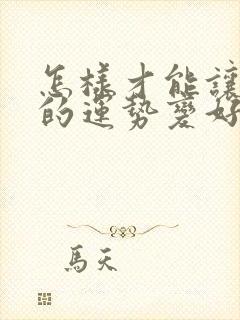 怎樣才能讓
的運勢變好
馬天